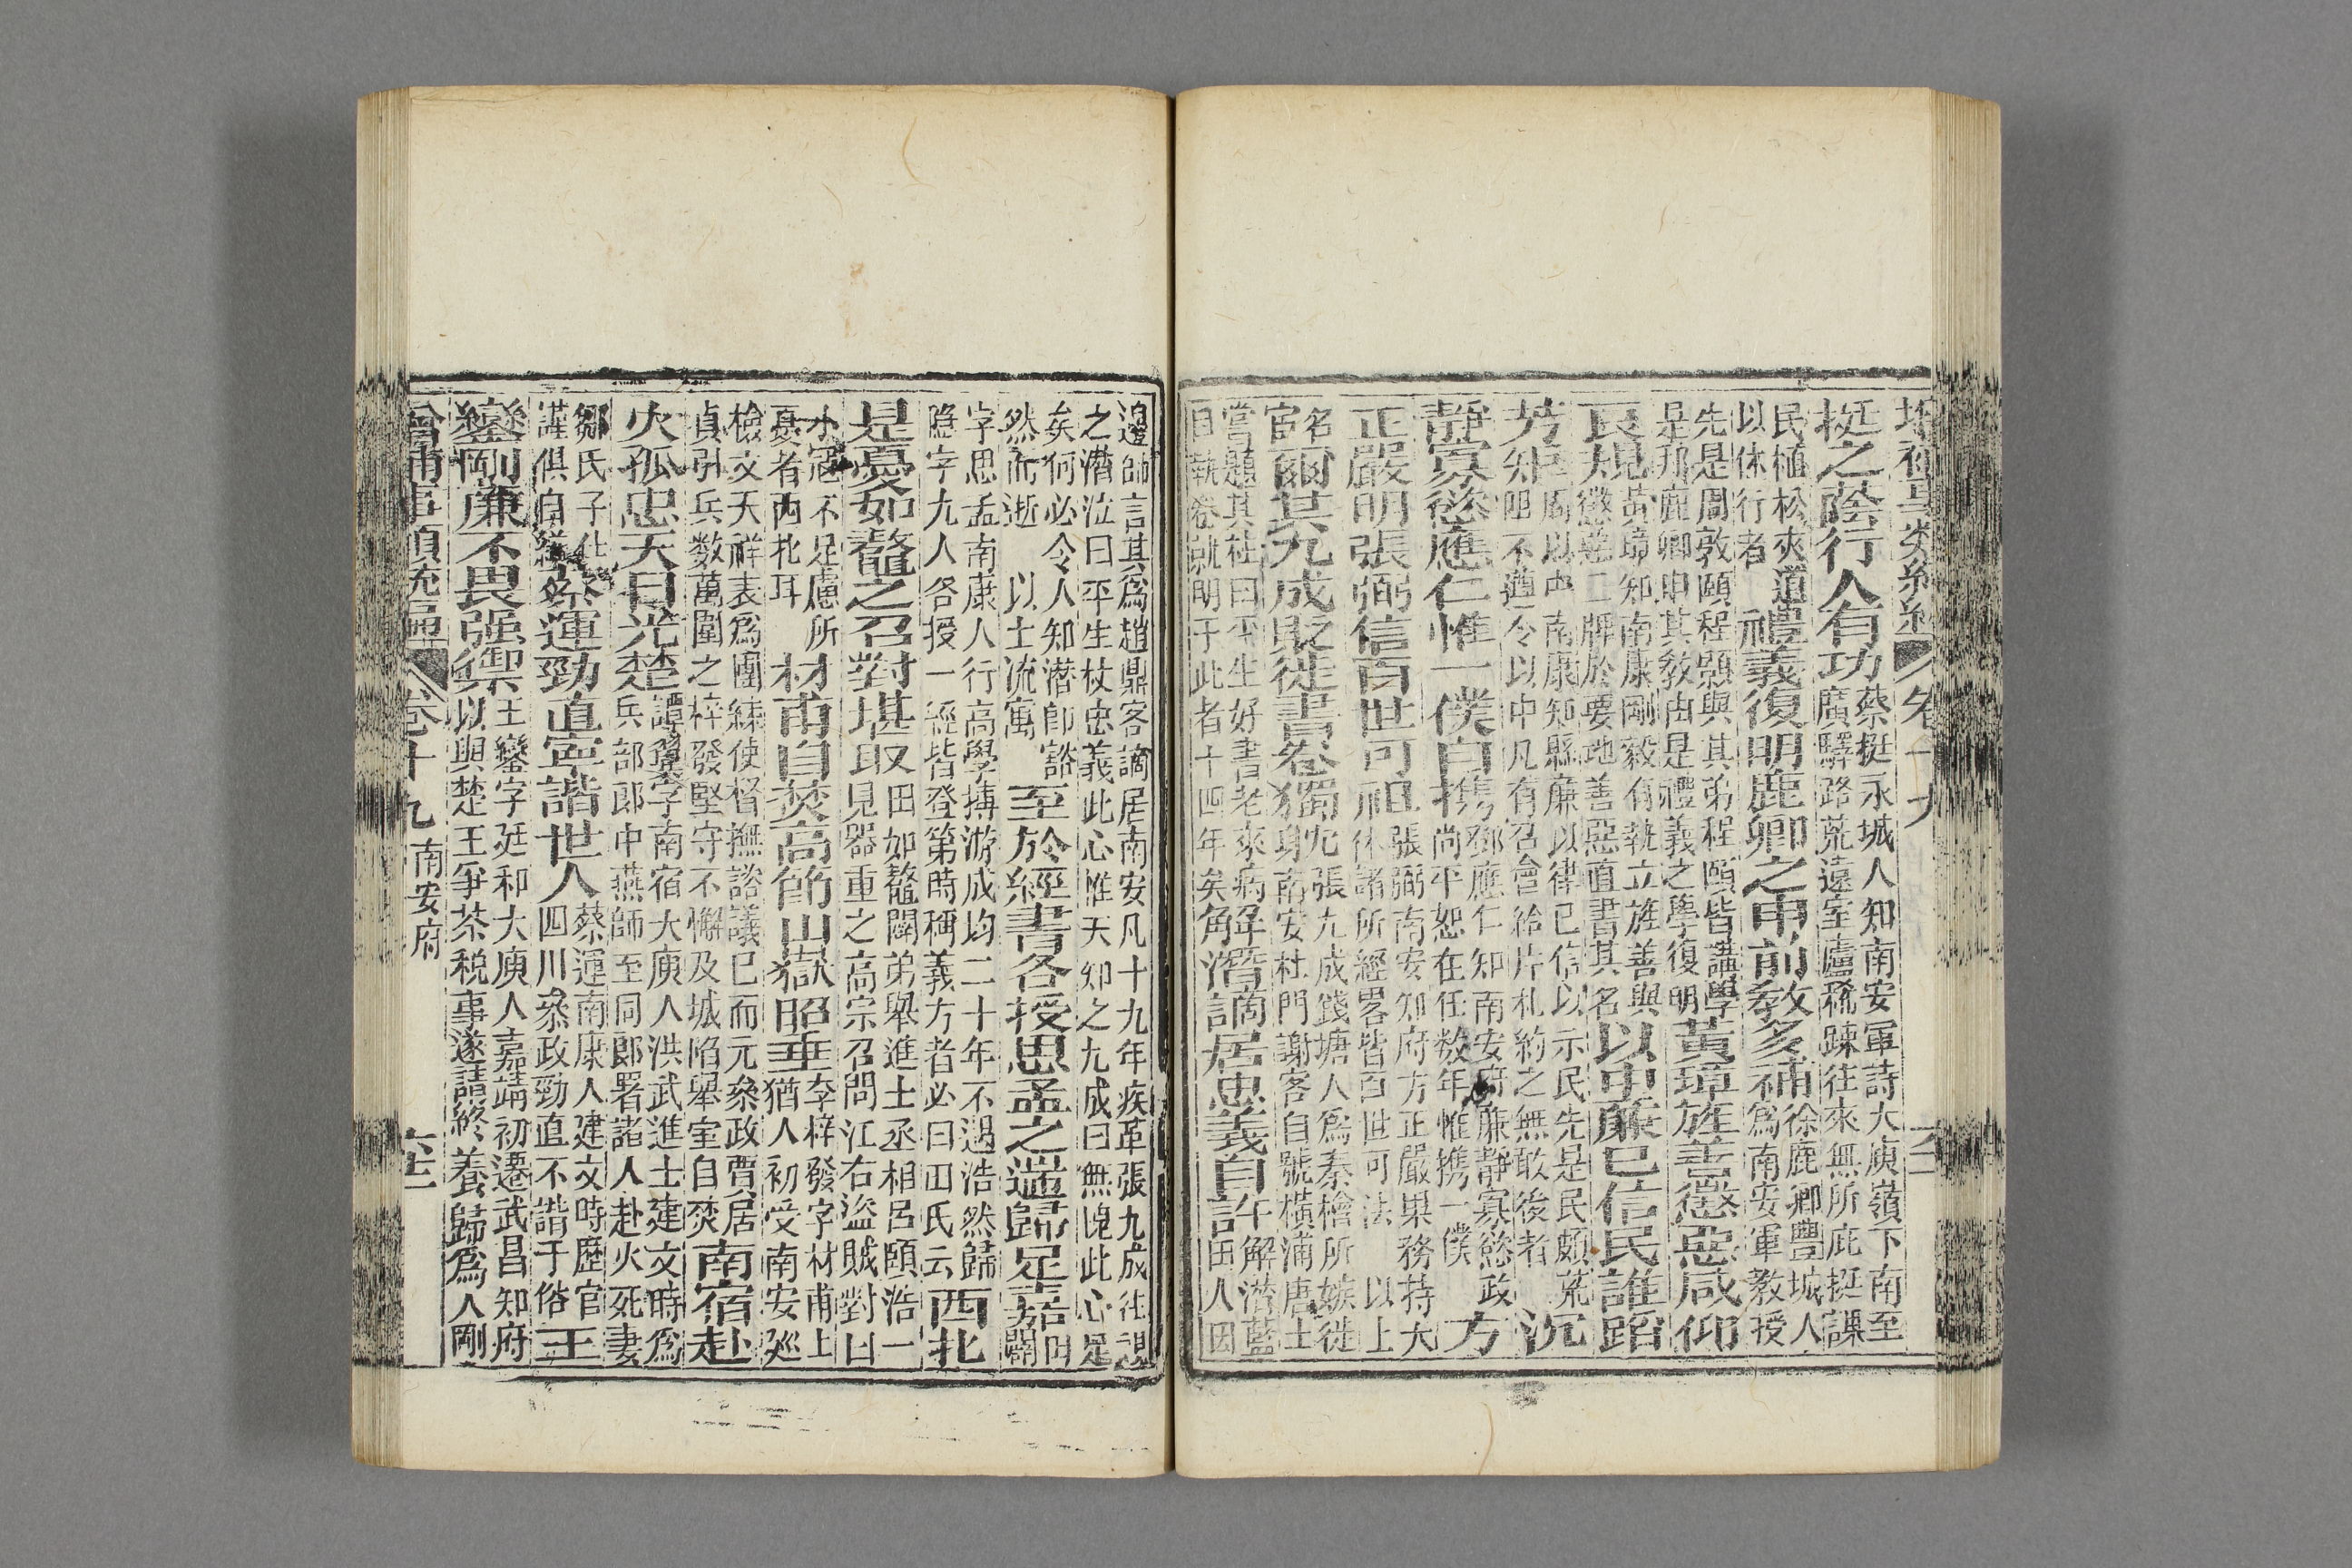 增補事類統編 卷十九
挺之蔭行人有功 蔡挺永城人知南安軍詩大庾嶺下南至廣驛路荒遠室廬稀踈往來無所庇挺課
民植松夾道以休行者 禮義復明鹿卿之申前教多補 徐鹿卿豐城人爲南安軍教授
先是周敦頤程顥與其弟程頤皆講學是邦鹿卿申其教由是禮義之學復明 黃璋旌善懲惡咸仰
良規 黃璋知南康剛毅有執立旌善與懲惡二牌於要地善惡直書其名 以中廉已信民誰蹈
芳 周以中南康知縣廉以律已信以示民先是民頗荒阻不遵令以中凡有召會給片札約之無敢後者 況
靜寡慾應仁惟一僕自携 鄧應仁知南安府廉靜寡慾政尚平恕在任数年惟携一僕 方
正嚴明張弼信百世可祖 張弼南安知府方正嚴果務持大体諸所經畧皆百世可法 以上
名宦 爾其九成貶徙書卷獨 張九成錢塘人爲秦檜所嫉徙南安杜門謝客自號橫浦唐士
嘗題其柱曰平生好書老來病目執卷就明于此者十四年矣 解潛謫居忠義自許 解潛藍田人因
邊帥言其爲趙鼎客謫居南安凡十九年疾革張九成往視之潛泣曰平生杖忠義此心惟天知之九成曰無愧此心足
矣何必令人知潛卽谿然而逝 以上流寓 至於經書各授思孟之遄歸足嘉 田闢
字思孟南康人行高學博游成均二十年不遇浩然歸隐字九人各授一經皆登第時稱義方者必曰田氏云 西北
是憂如鼇之召對堪取 田如鼇闢弟舉進士丞相呂頤浩一見器重之高宗召問江右盜賊對曰
小冦不足慮所憂者西北耳 材甫自焚高節山嶽昭垂 李梓發字材甫上猶人初受南安廵
檢文天祥表爲團練使督撫諮議已而元叅政賈居貞引兵数萬圍之梓發堅守不懈及城陷舉室自焚 南宿赴
火孤忠天日光楚 譚翼字南宿大庾人洪武進士建文時爲兵部郎中燕師至同郎署諸人赴火死妻
鄒氏子仕謹俱自殺 蔡運勁直寧諧世人 蔡運南康人建文時歴官四川叅政勁直不諧于俗 王
鑾剛廉不畏强禦 王鑾字廷和大庾人嘉靖初遷武昌知府以與楚王爭茶稅事遂請終養歸爲人剛
增補事類統編 卷十九 南安府